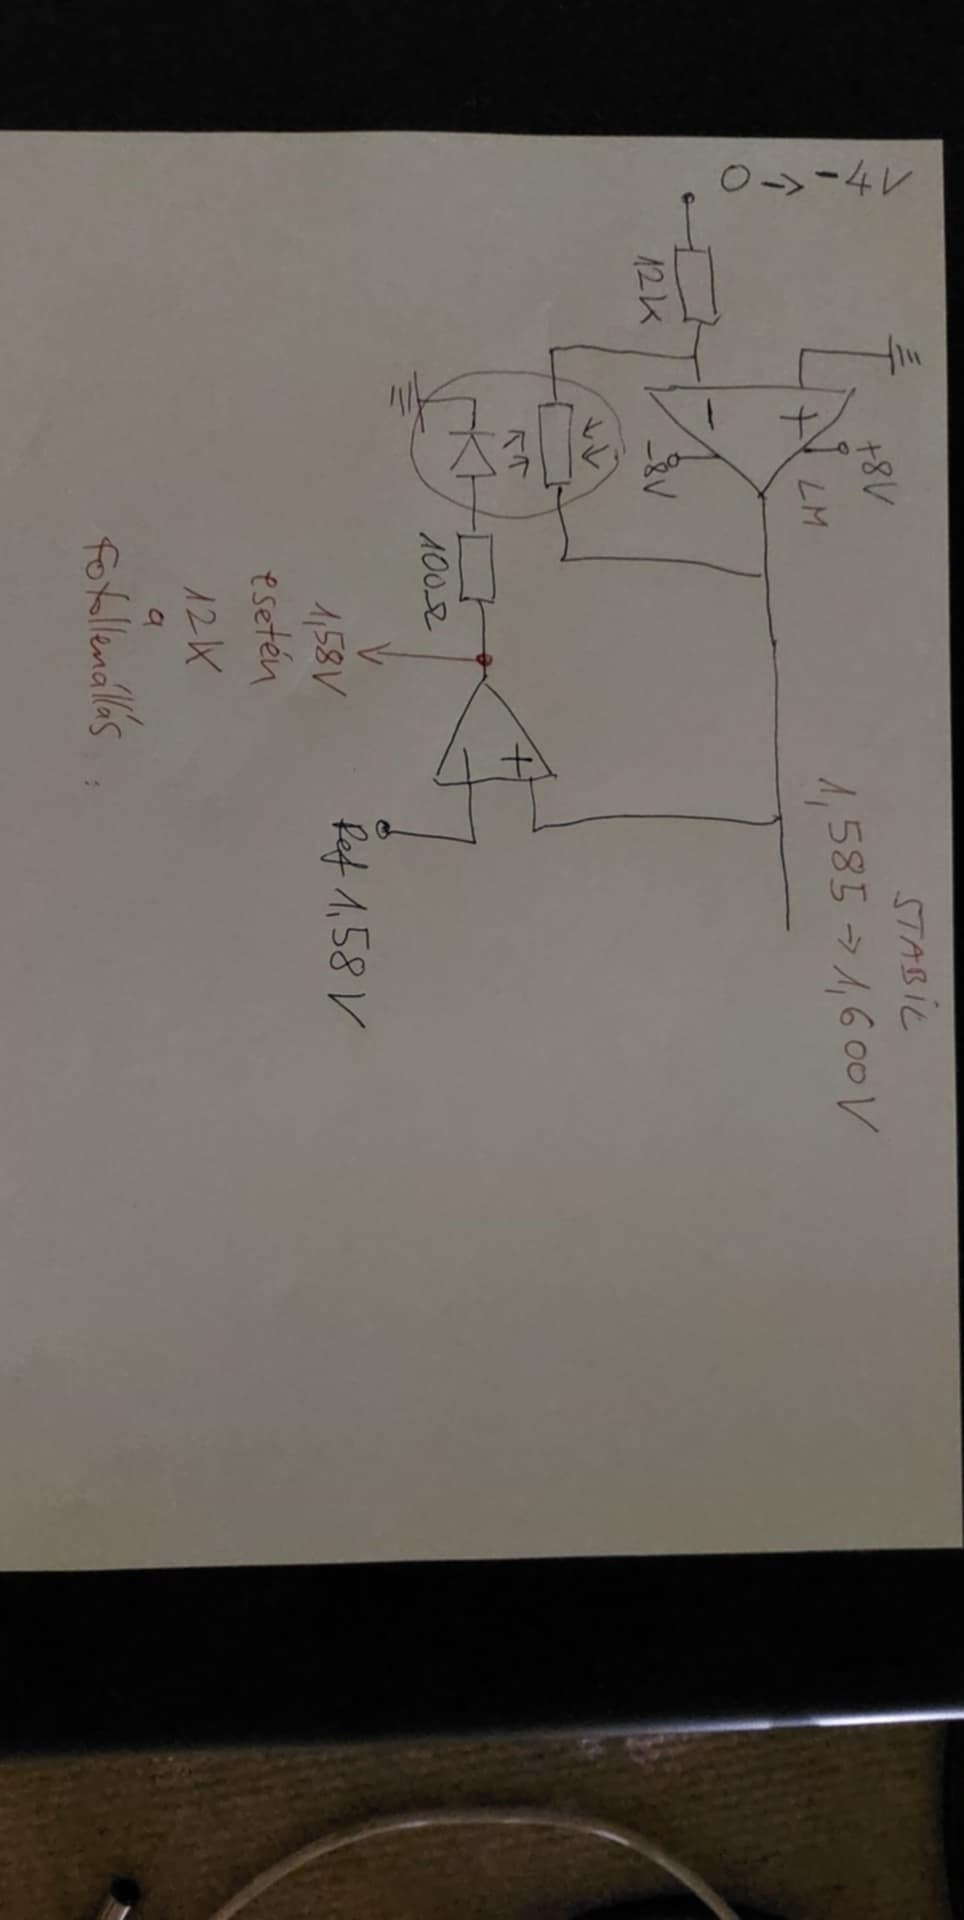 0 → -4V
12K
+
-
+8V
-8V
LM
STABIL
1,585 → 1,600V
100Ω
+
-
Ref 1,58V
1,58V
esetén
12K
a
fotoellenállás :